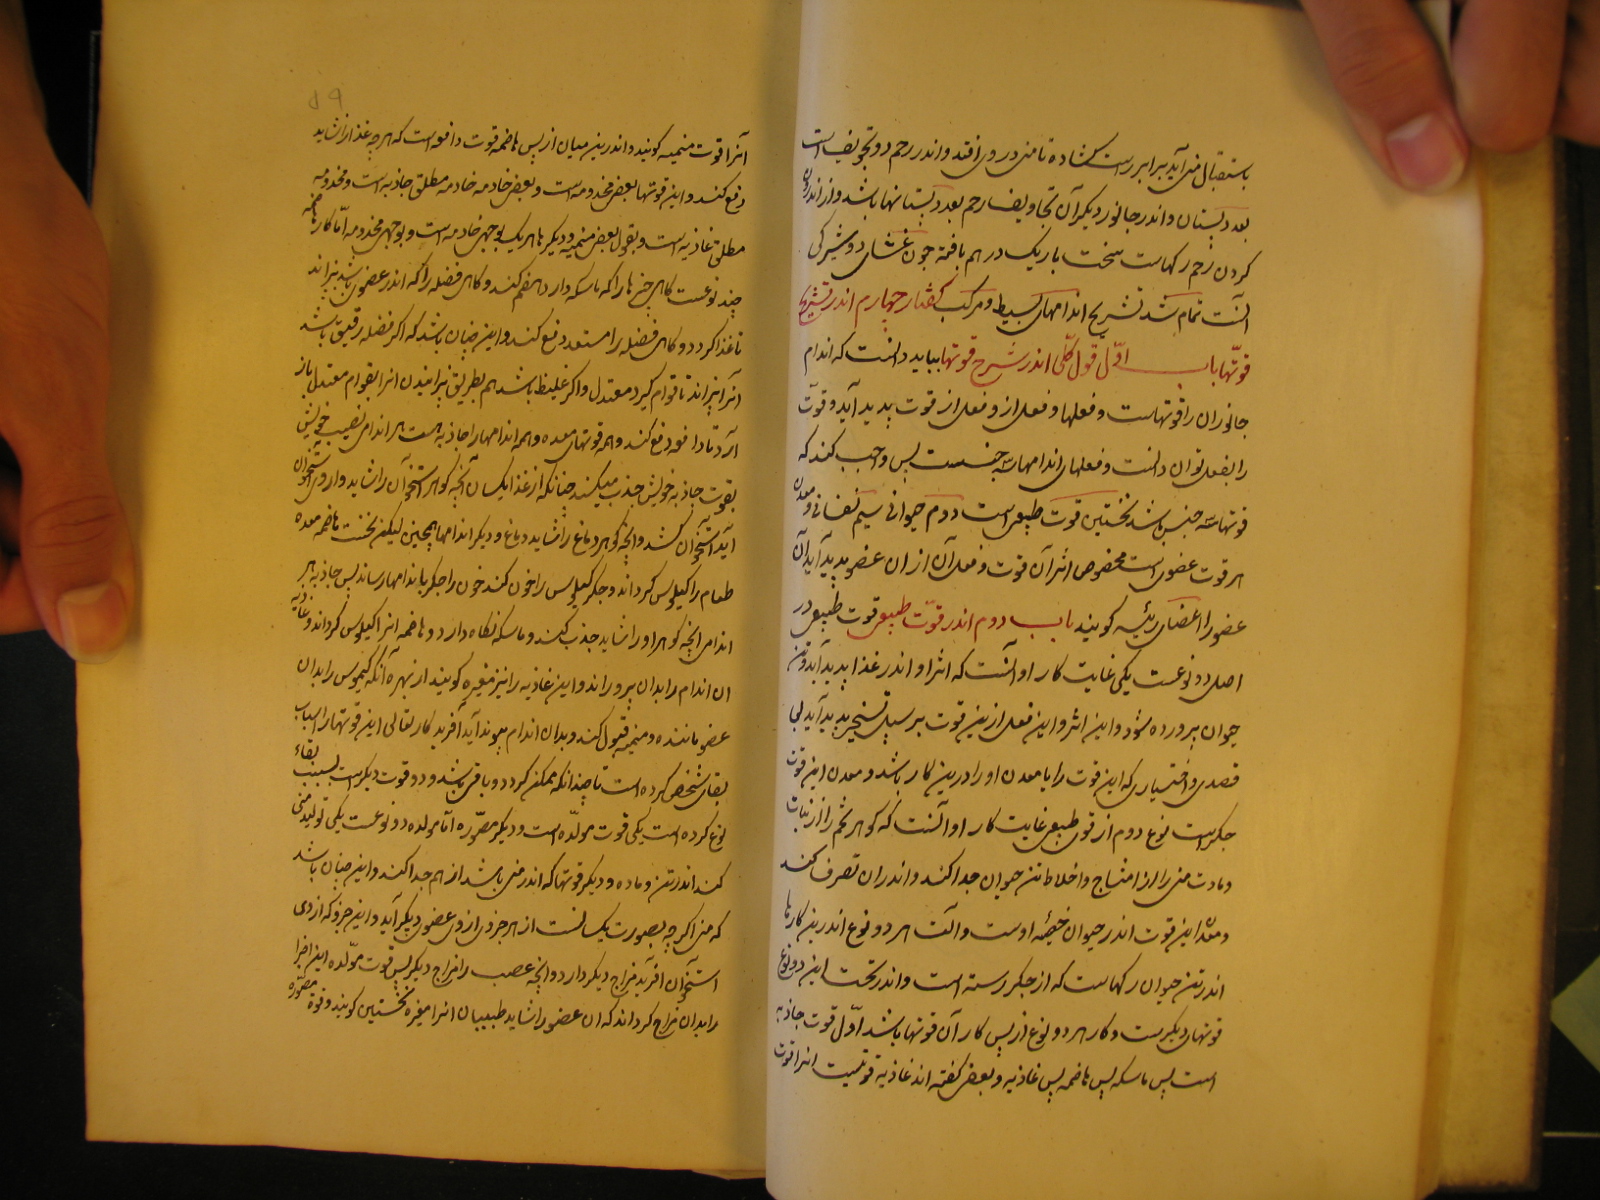 باستقبال منی آید برابر راست کشاده تا منی در وی افتد و اندر رحم دو تجویف است
بعدد پستان و اندر جانور دیگر آن تجاویف رحم بعدد پستانها باشد و از اندرون
کردن رحم رکهاست سخت باریک در هم بافته چون غشای دوشیزگی
آنست تمام شد تشریح اندامهای بسیط و مرکب کفتار چهارم اندر تشریح
قوّتها باب اوّل قول کلّی اندر شرح قوتها بباید دانست که اندام
جانوران را قوتهاست و فعلها و فعل از و فعل از قوت پدید آید و قوّت
را بفعل توان دانست و فعلهای اندامها سه جنسست پس واجب کند که
قوتها سه جنس باشد نخستین قوت طبیعی است دوم حیوانی سیم نفسانی و معدن
هر قوت عضوی است مخصوص اثر آن قوت و فعل آن از ان عضو پدید آید آن
عضو را اعضای رئیسه کویند باب دوم اندر قوّت طبیعی قوت طبیعی در
اصل دو نوعست یکی غایت کار او آنست که اثر او اندر غذا پدید آید و تن
حیوان پرورده شود و این اثر و این فعل ازین قوت بر سبیل تسخیر پدید آید بی
قصدی و اختیاری که این قوت را یا معدن او را درین کار باشد و معدن این قوت
جکرست نوع دوم از قوی طبیعی غایت کار او آنست که کوهر تخم را از نبات
و مادت منی را از امتزاج و اخلاط تن حیوان جدا کند و اندر ان تصرف کند
و معدن این قوت اندر حیوان خصیه اوست و آلت هر دو نوع اندرین کارها
اندر تن حیوان رکهاست که از جکر رسته است و اندر تحت این دو نوع
قوتهای دیکرست و کار هر دو نوع از پس کار آن قوتها باشد اوّل قوت جاذبه
است پس ماسکه پس هاضمه پس غاذیه و بعضی کفته اند غاذیه قوتیست انرا قوت
۵۹
آنرا قوت منمیه کویند و اندرین میان از پس هاضمه قوت دافعه است که هر چه غذا را نشاید
دفع کند و این قوتها بعضی مخدومه است و بعضی خادمه خادمه مطلق جاذبه است و مخدومه
مطلق غاذیه است و بقول بعضی منمیه و دیکرها هر یک بوجهی خادمه است و بوجهی مخدومه امّا کار هاضمه
چند نوعست کاهی چیزها را که ماسکه دارد هضم کند و کاهی فضله را که اندر عضوی باشد بپزاند
تا غذا کردد و کاهی فضله را مستعد دفع کند و این چنان باشد که اکر فضله رقیق باشد
آنرا بپزاند تا قوام کیرد معتدل و اکر غلیظ باشد هم بطریق پزانیدن انرا بقوام معتدل باز
آرد تا دافعه دفع کند و همه قوتهای معده و همه اندامها را جاذبه هست هر اندامی نصیب خویش
بقوت جاذبه خویش جذب میکنند چنانکه از غذا یکسان آنچه کوهر استخوان را شاید و از وی استخوان
آید استخوان کشد و آنچه کوهر دماغ را شاید دماغ و دیکر اندامها همچنین لیکن نخست هاضمه معده
طعام را کیلوس کرداند و جکر کیلوس را خون کند خون را جکر باندامها رساند پس جاذبه هر
اندامی آنچه کوهر او را شاید جذب کند و ماسکه نکاه دارد و هاضمه انرا کیلوس کرداند و غاذیه
ان اندام را بدان پروراند و این غاذیه را نیز مغیره کویند از بهر آنکه کیموس را بدان
عضو ماننده و منمیه قبول کند و بدان اندام پیوند آید آفریدکار تعالی این قوتها را اسباب
بقای شخص کرده است تا چندانکه ممکن کردد و باقی باشد و دو قوت دیکر است بسبب بقاء
نوع کرده است یکی قوت مولّده است و دیکر مصوّره امّا مولده دو نوعست یکی تولید منی
کند اندر تن و ماده و دیکر قوتها که اندر منی باشد از هم جدا کند و این چنان باشد
که منی اکر چه بصورت یک لنست از هر جزوی از وی عضوی دیکر آید و این جزو که از وی
استخوان آفریند مزاج دیکر دارد و آنچه عصب را مزاج دیکر پس قوت مولّده این اجزا
را بدان مزاج کرداند که ان عضو را شاید طبیبان انرا مغیره نخستین کویند و قوة مصوّره